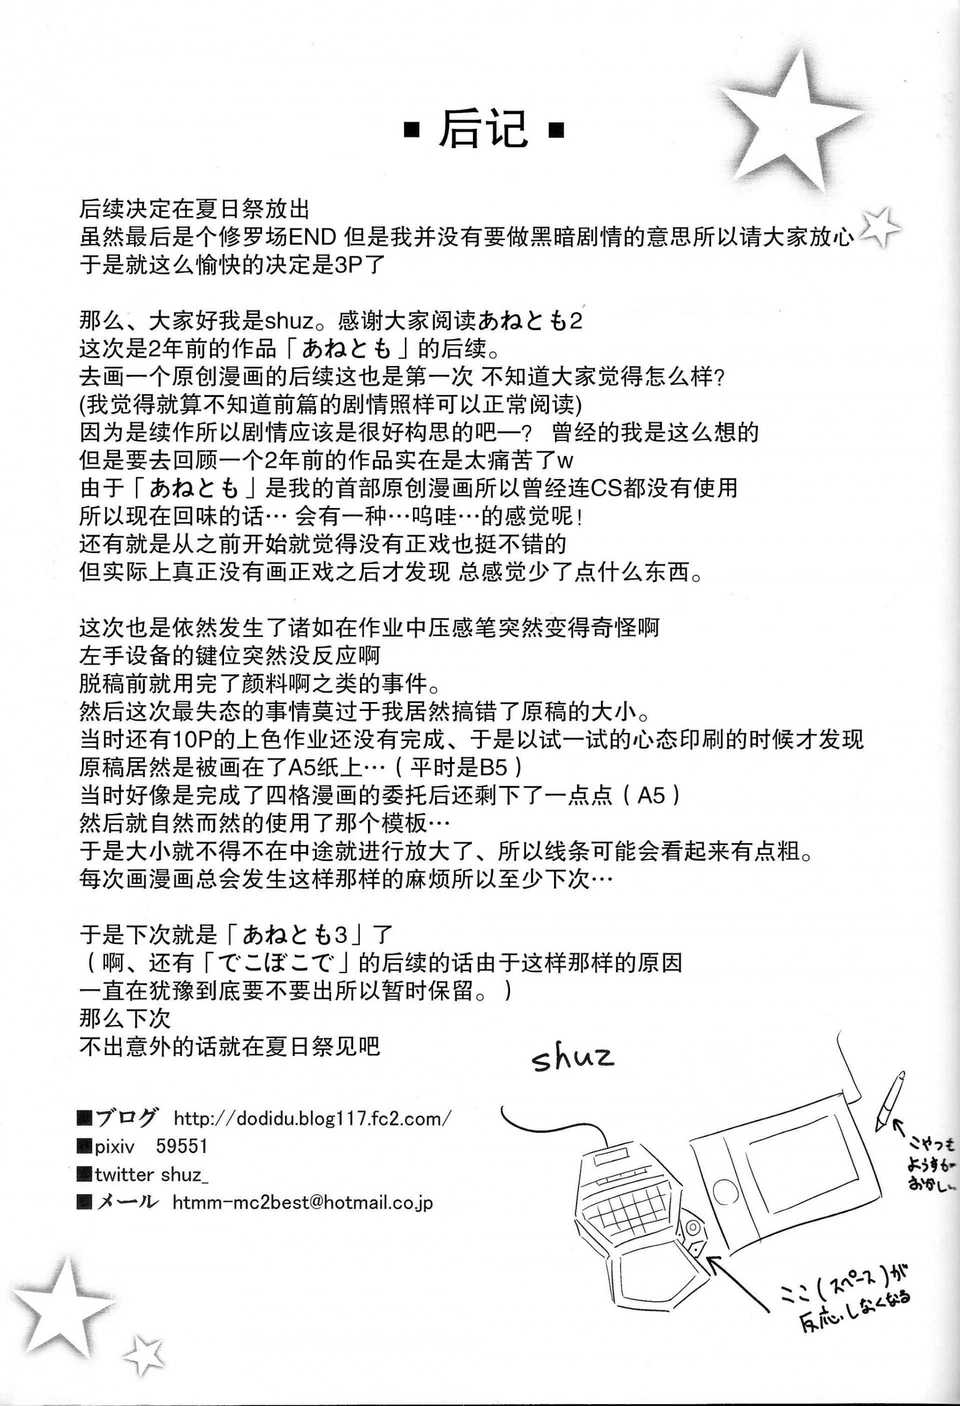 ■ 后记 ■
后续决定在夏日祭放出
虽然最后是个修罗场END 但是我并没有要做黑暗剧情的意思所以请大家放心
于是就这么愉快的决定是3P了
那么、大家好我是shuz。感谢大家阅读あねとも2
这次是2年前的作品「あねとも」的后续。
去画一个原创漫画的后续这也是第一次 不知道大家觉得怎么样?
(我觉得就算不知道前篇的剧情照样可以正常阅读)
因为是续作所以剧情应该是很好构思的吧—? 曾经的我是这么想的
但是要去回顾一个2年前的作品实在是太痛苦了w
由于「あねとも」是我的首部原创漫画所以曾经连CS都没有使用
所以现在回味的话… 会有一种…呜哇…的感觉呢!
还有就是从之前开始就觉得没有正戏也挺不错的
但实际上真正没有画正戏之后才发现 总感觉少了点什么东西。
这次也是依然发生了诸如在作业中压感笔突然变得奇怪啊
左手设备的键位突然没反应啊
脱稿前就用完了颜料啊之类的事件。
然后这次最失态的事情莫过于我居然搞错了原稿的大小。
当时还有10P的上色作业还没有完成、于是以试一试的心态印刷的时候才发现
原稿居然是被画在了A5纸上…（平时是B5）
当时好像是完成了四格漫画的委托后还剩下了一点点（A5）
然后就自然而然的使用了那个模板…
于是大小就不得不在中途就进行放大了、所以线条可能会看起来有点粗。
每次画漫画总会发生这样那样的麻烦所以至少下次…
于是下次就是「あねとも3」了
（啊、还有「でこぼこで」的后续的话由于这样那样的原因
一直在犹豫到底要不要出所以暂时保留。）
那么下次
不出意外的话就在夏日祭见吧
shuz
■ブログ http://dodidu.blog117.fc2.com/
■pixiv 59551
■twitter shuz_
■メール htmm-mc2best@hotmail.co.jp
こやつも
ようすが
おかしい
ここ(スペース)が
反応しなくなる